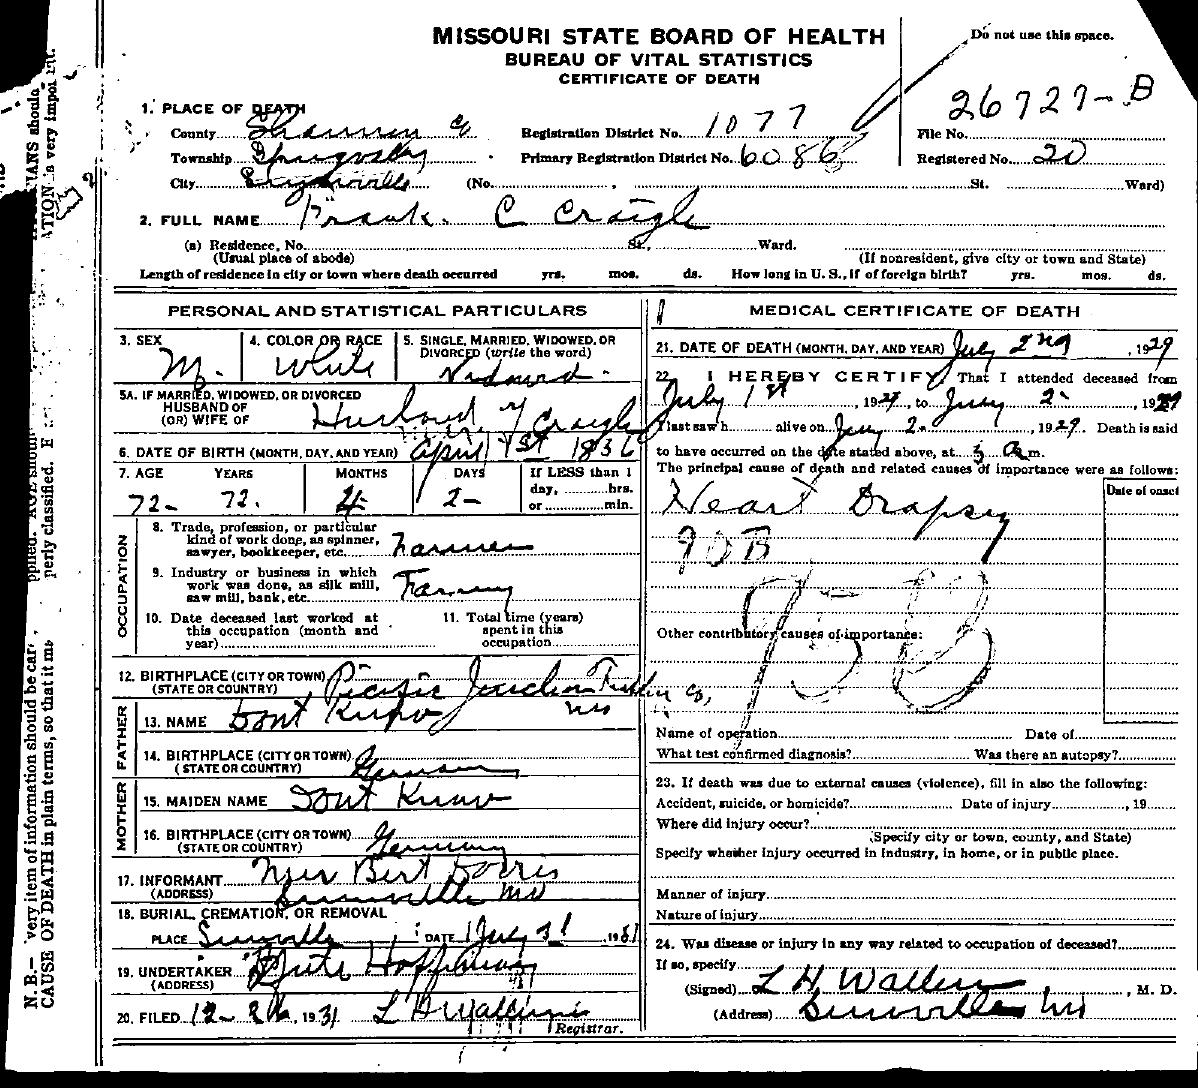 MISSOURI STATE BOARD OF HEALTH
BUREAU OF VITAL STATISTICS
CERTIFICATE OF DEATH
Do not use this space.
26727-B
1. PLACE OF DEATH
County Shannon Co
Registration District No. 1077
File No.
Township
Primary Registration District No. 6086
Registered No. 20
City
(No. , St. Ward)
2. FULL NAME Frank. C Craigle
(a) Residence, No. St., Ward.
(Usual place of abode) (If nonresident, give city or town and State)
Length of residence in city or town where death occurred yrs. mos. ds. How long in U. S., if of foreign birth? yrs. mos. ds.
PERSONAL AND STATISTICAL PARTICULARS
3. SEX M.
4. COLOR OR RACE White
5. SINGLE, MARRIED, WIDOWED, OR
DIVORCED (write the word)
5A. IF MARRIED, WIDOWED, OR DIVORCED
HUSBAND OF
(OR) WIFE OF Husband of Craigle
6. DATE OF BIRTH (MONTH, DAY, AND YEAR) April 1st 1836
7. AGE YEARS MONTHS DAYS If LESS than 1
day, hrs.
or min.
72- 72. 4 2-
OCCUPATION
8. Trade, profession, or particular
kind of work done, as spinner,
sawyer, bookkeeper, etc. Farmer
9. Industry or business in which
work was done, as silk mill,
saw mill, bank, etc. Farming
10. Date deceased last worked at
this occupation (month and
year)
11. Total time (years)
spent in this
occupation
12. BIRTHPLACE (CITY OR TOWN)
(STATE OR COUNTRY) Pacific Co,
Mo
FATHER
13. NAME Dont Know
14. BIRTHPLACE (CITY OR TOWN)
(STATE OR COUNTRY) Germany
MOTHER
15. MAIDEN NAME Dont Know
16. BIRTHPLACE (CITY OR TOWN)
(STATE OR COUNTRY) Germany
17. INFORMANT Bert
(ADDRESS) Mo
18. BURIAL, CREMATION, OR REMOVAL
PLACE DATE July 3 1931
19. UNDERTAKER
(ADDRESS)
20. FILED 12- 1931
Registrar.
MEDICAL CERTIFICATE OF DEATH
21. DATE OF DEATH (MONTH, DAY, AND YEAR) July 2nd, 1929
22. I HEREBY CERTIFY, That I attended deceased from
July 1st 1929, to July 2- 1929
I last saw h alive on July 2- 1929. Death is said
to have occurred on the date stated above, at 3 a m.
The principal cause of death and related causes of importance were as follows:
Date of onset
Heart Drapsy
90B
95B
Other contributory causes of importance:
Name of operation Date of
What test confirmed diagnosis? Was there an autopsy?
23. If death was due to external causes (violence), fill in also the following:
Accident, suicide, or homicide? Date of injury , 19
Where did injury occur?
(Specify city or town, county, and State)
Specify whether injury occurred in industry, in home, or in public place.
Manner of injury
Nature of injury
24. Was disease or injury in any way related to occupation of deceased?
If so, specify
(Signed) L H , M. D.
(Address) Mo
N. B.— very item of information should be
CAUSE OF DEATH in plain terms, so that it
perly classified.